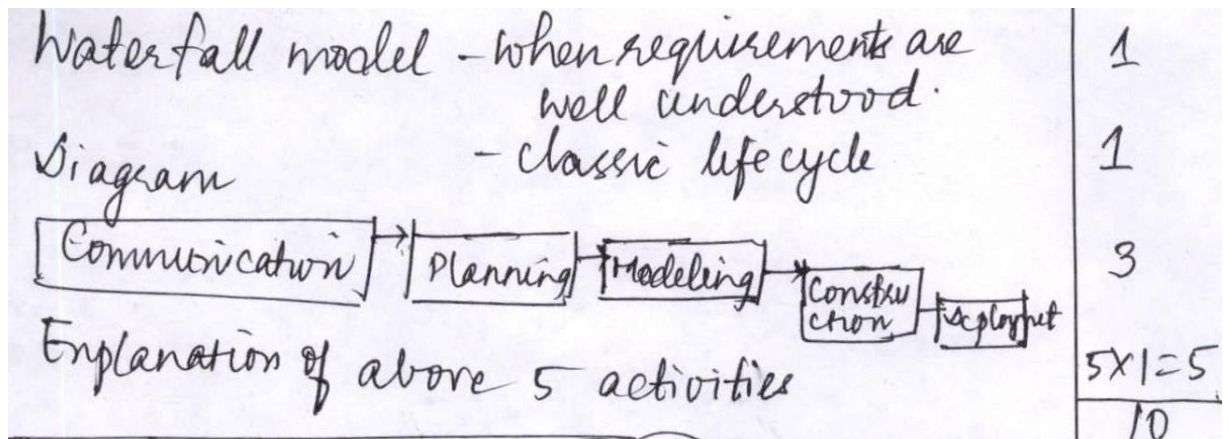 Waterfall model - when requirements are 1
well understood.
- classic life cycle 1
Diagram
Communication Planning Modeling Constru 3
ction Deployment
Explanation of above 5 activities 5X1=5
10